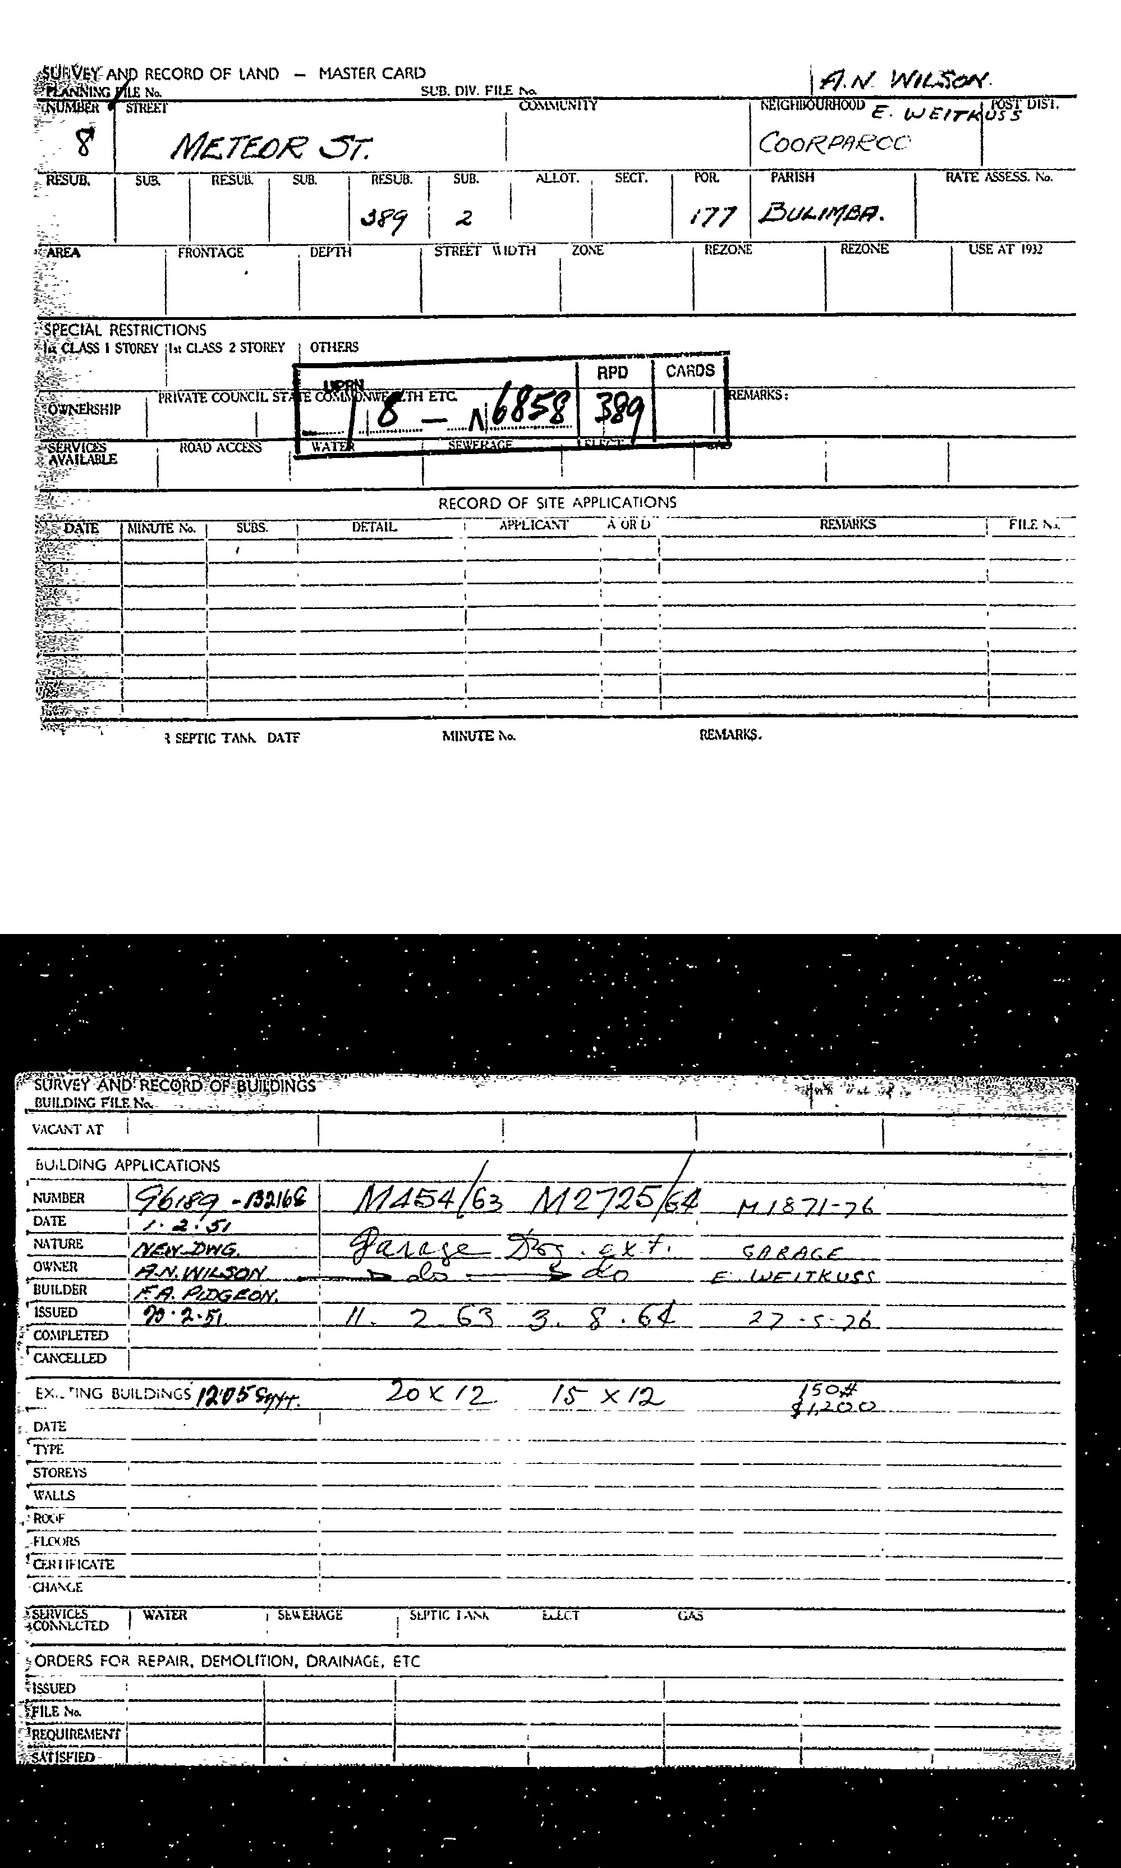 SURVEY AND RECORD OF LAND — MASTER CARD
A.N. WILSON.
PLANNING FILE No. SUB. DIV. FILE No.
NUMBER STREET COMMUNITY NEIGHBOURHOOD POST DIST.
E. WEITKUSS
8 METEOR ST. COORPAROO
RESUB. SUB. RESUB. SUB. RESUB. SUB. ALLOT. SECT. POR. PARISH RATE ASSESS. No.
389 2 177 BULIMBA.
AREA FRONTAGE DEPTH STREET WIDTH ZONE REZONE REZONE USE AT 1932
SPECIAL RESTRICTIONS
1st CLASS 1 STOREY 1st CLASS 2 STOREY OTHERS
UPRN RPD CARDS
OWNERSHIP PRIVATE COUNCIL STATE COMMONWEALTH ETC. REMARKS:
8 — 6858 389
SERVICES AVAILABLE ROAD ACCESS WATER SEWERAGE ELECT. GAS
RECORD OF SITE APPLICATIONS
DATE MINUTE No. SUBS. DETAIL APPLICANT A OR D REMARKS FILE No.
R SEPTIC TANK DATE MINUTE No. REMARKS.
SURVEY AND RECORD OF BUILDINGS
BUILDING FILE No.
VACANT AT
BUILDING APPLICATIONS
NUMBER 96189 - 132168 M454/63 M2725/64 M1871-76
DATE 1.2.51
NATURE NEW DWG. Garage Dwg. ext. GARAGE
OWNER A.N. WILSON do do E WEITKUSS
BUILDER F.A. PIDGEON.
ISSUED 20.2.51 11. 2 63 3. 8. 64 27-5-76
COMPLETED
CANCELLED
EXISTING BUILDINGS 1205 Sq ft. 20 X 12 15 X 12 150#
$1,200
DATE
TYPE
STOREYS
WALLS
ROOF
FLOORS
CERTIFICATE
CHANGE
SERVICES CONNECTED WATER SEWERAGE SEPTIC TANK ELECT GAS
ORDERS FOR REPAIR, DEMOLITION, DRAINAGE, ETC
ISSUED
FILE No.
REQUIREMENT
SATISFIED